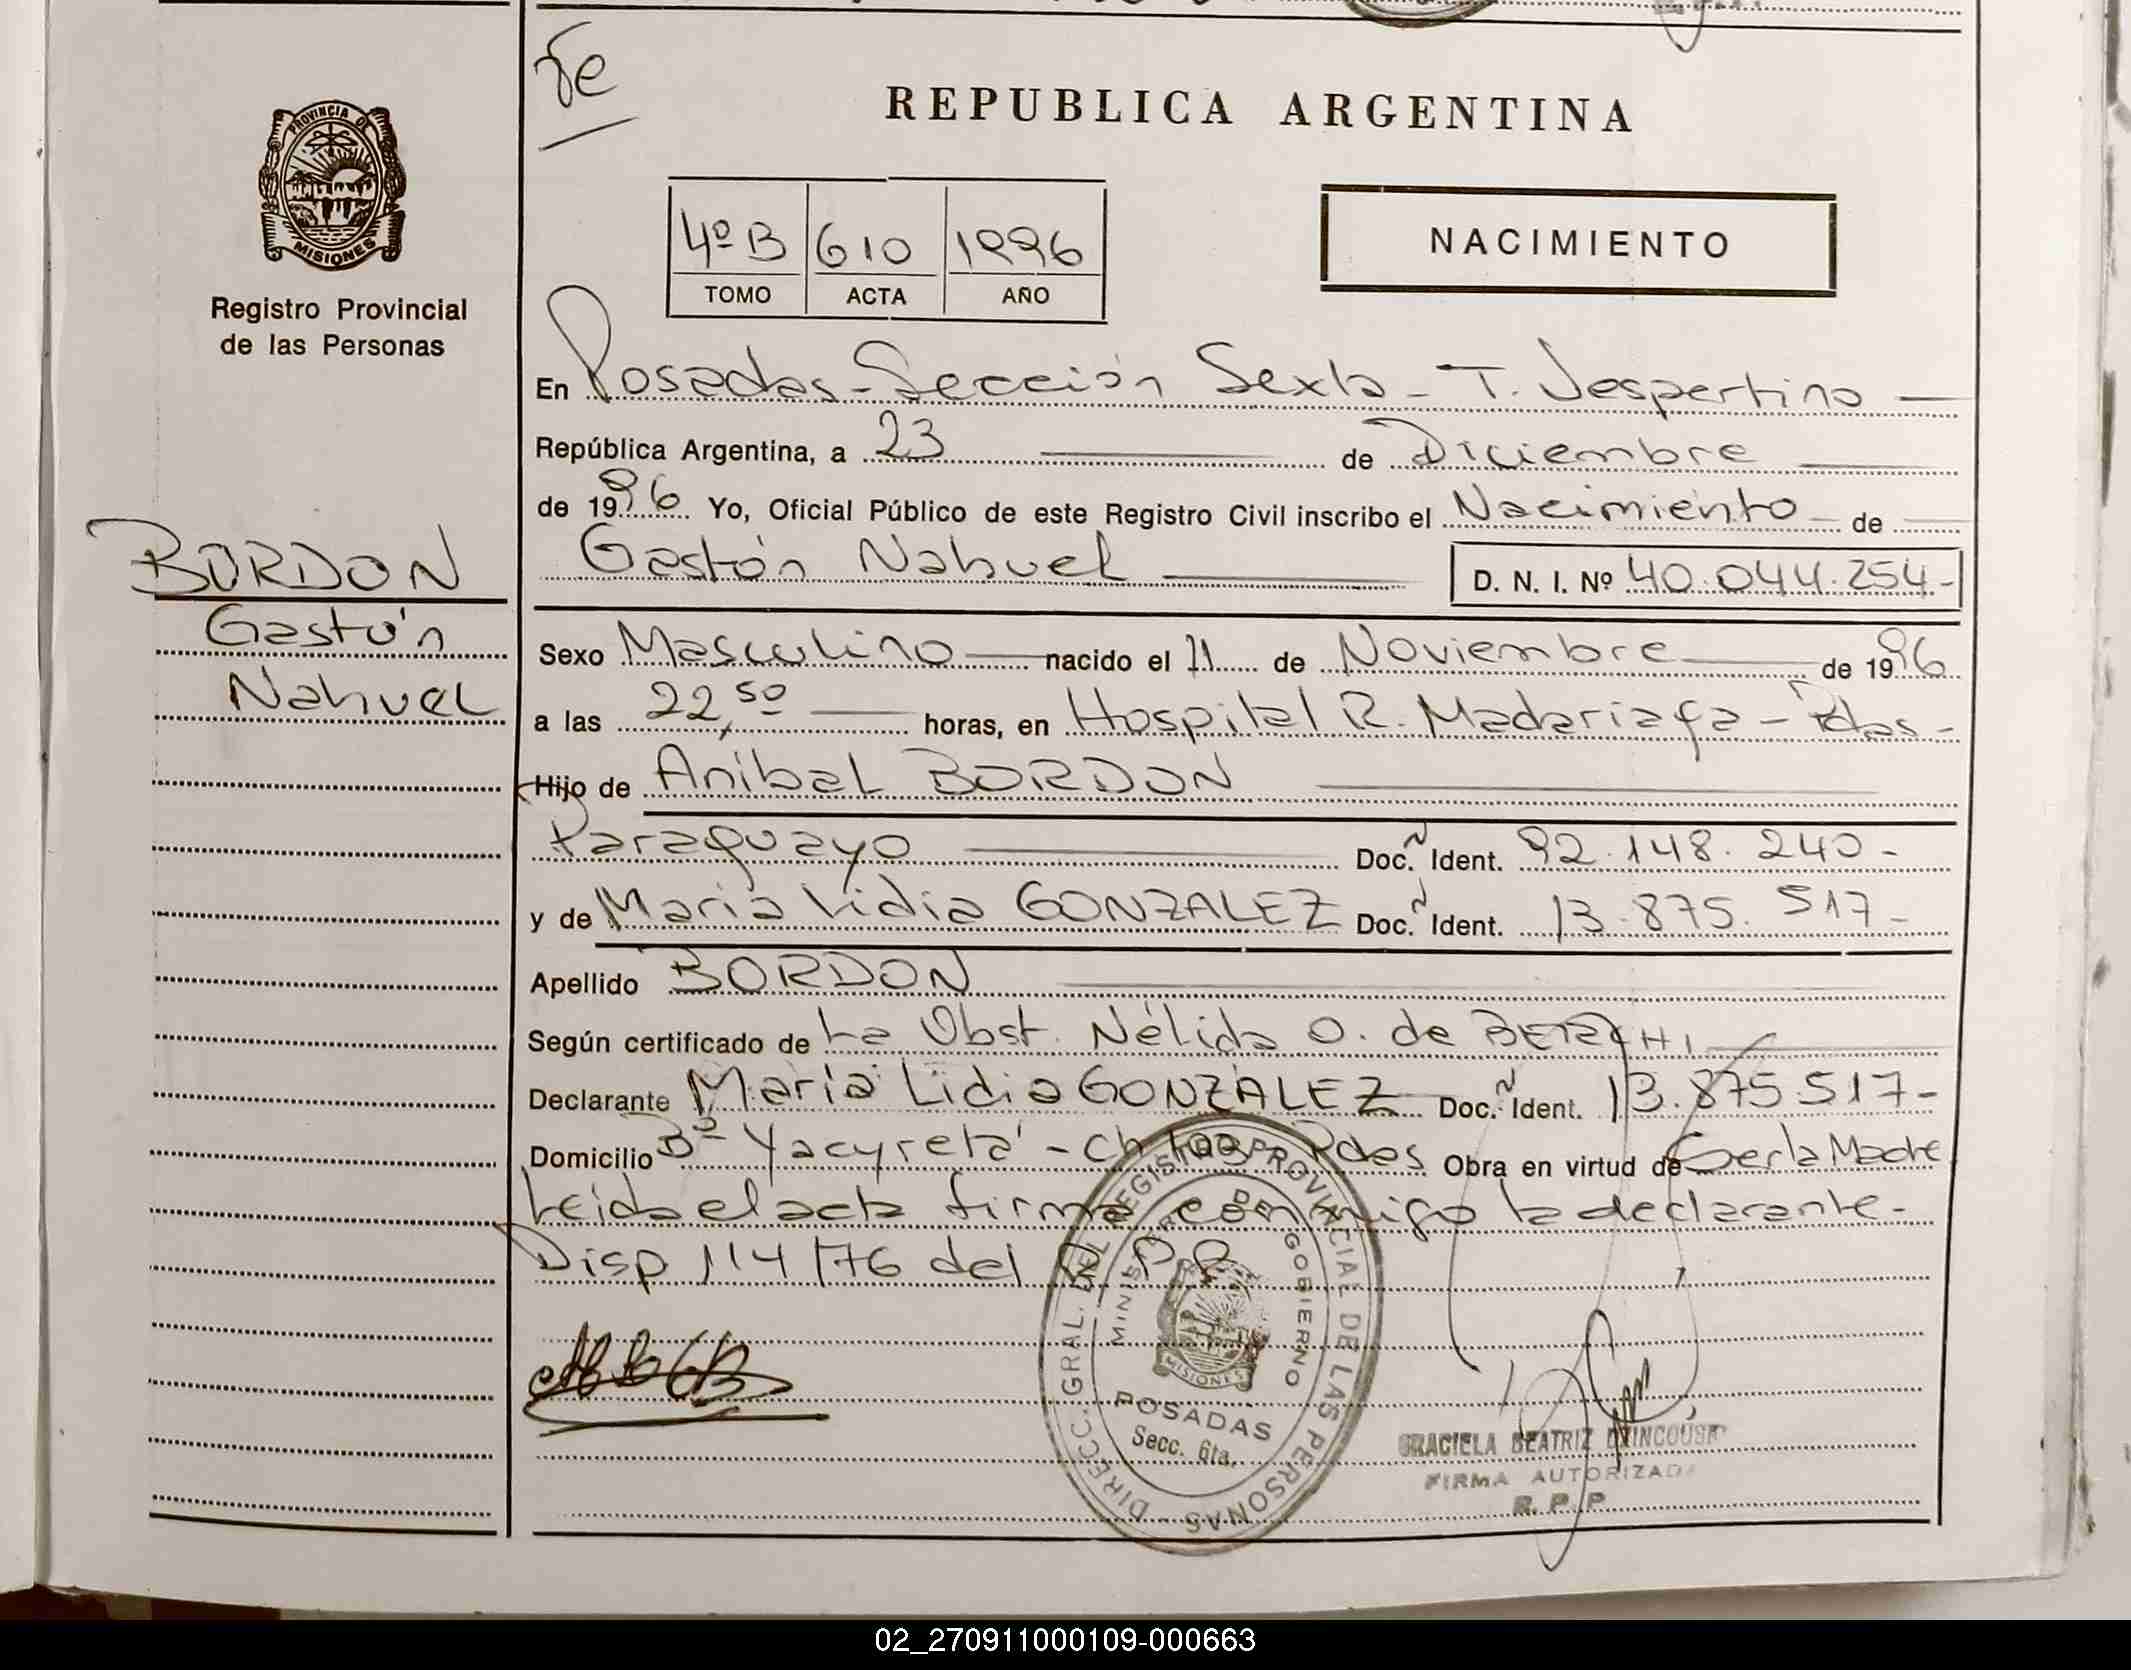 fe
REPUBLICA ARGENTINA
PROVINCIA DE
MISIONES
4º B 610 1996
TOMO ACTA AÑO
NACIMIENTO
Registro Provincial
de las Personas
En Posadas - Sección Sexta - T. Vespertino
República Argentina, a 23 de Diciembre
de 1996 Yo, Oficial Público de este Registro Civil inscribo el Nacimiento de
Gastón Nahuel D. N. I. Nº 40.044.254-
BORDON
Gastón
Nahuel
Sexo Masculino nacido el 11 de Noviembre de 1996
a las 22,50 horas, en Hospital R. Madariaga - Pdas -
Hijo de Anibal BORDON
Paraguayo Doc. Ident. 92.148.240-
y de Maria Lidia GONZALEZ Doc. Ident. 13.875.517-
Apellido BORDON
Según certificado de La Obst. Nélida O. de
Declarante María Lidia GONZALEZ Doc. Ident. 13.875.517-
Domicilio Bº Yacyretá - Pdas Obra en virtud de Ser la Madre
Leida el acta firma conmigo la declarante -
Disp 114/76 del R.P.P.
DIRECC. GRAL. DEL REGISTRO PROVINCIAL DE LAS PERSONAS
MINISTERIO DE GOBIERNO
MISIONES
POSADAS
Secc. 6ta.
GRACIELA BEATRIZ
FIRMA AUTORIZADA
R. P. P
02_270911000109-000663